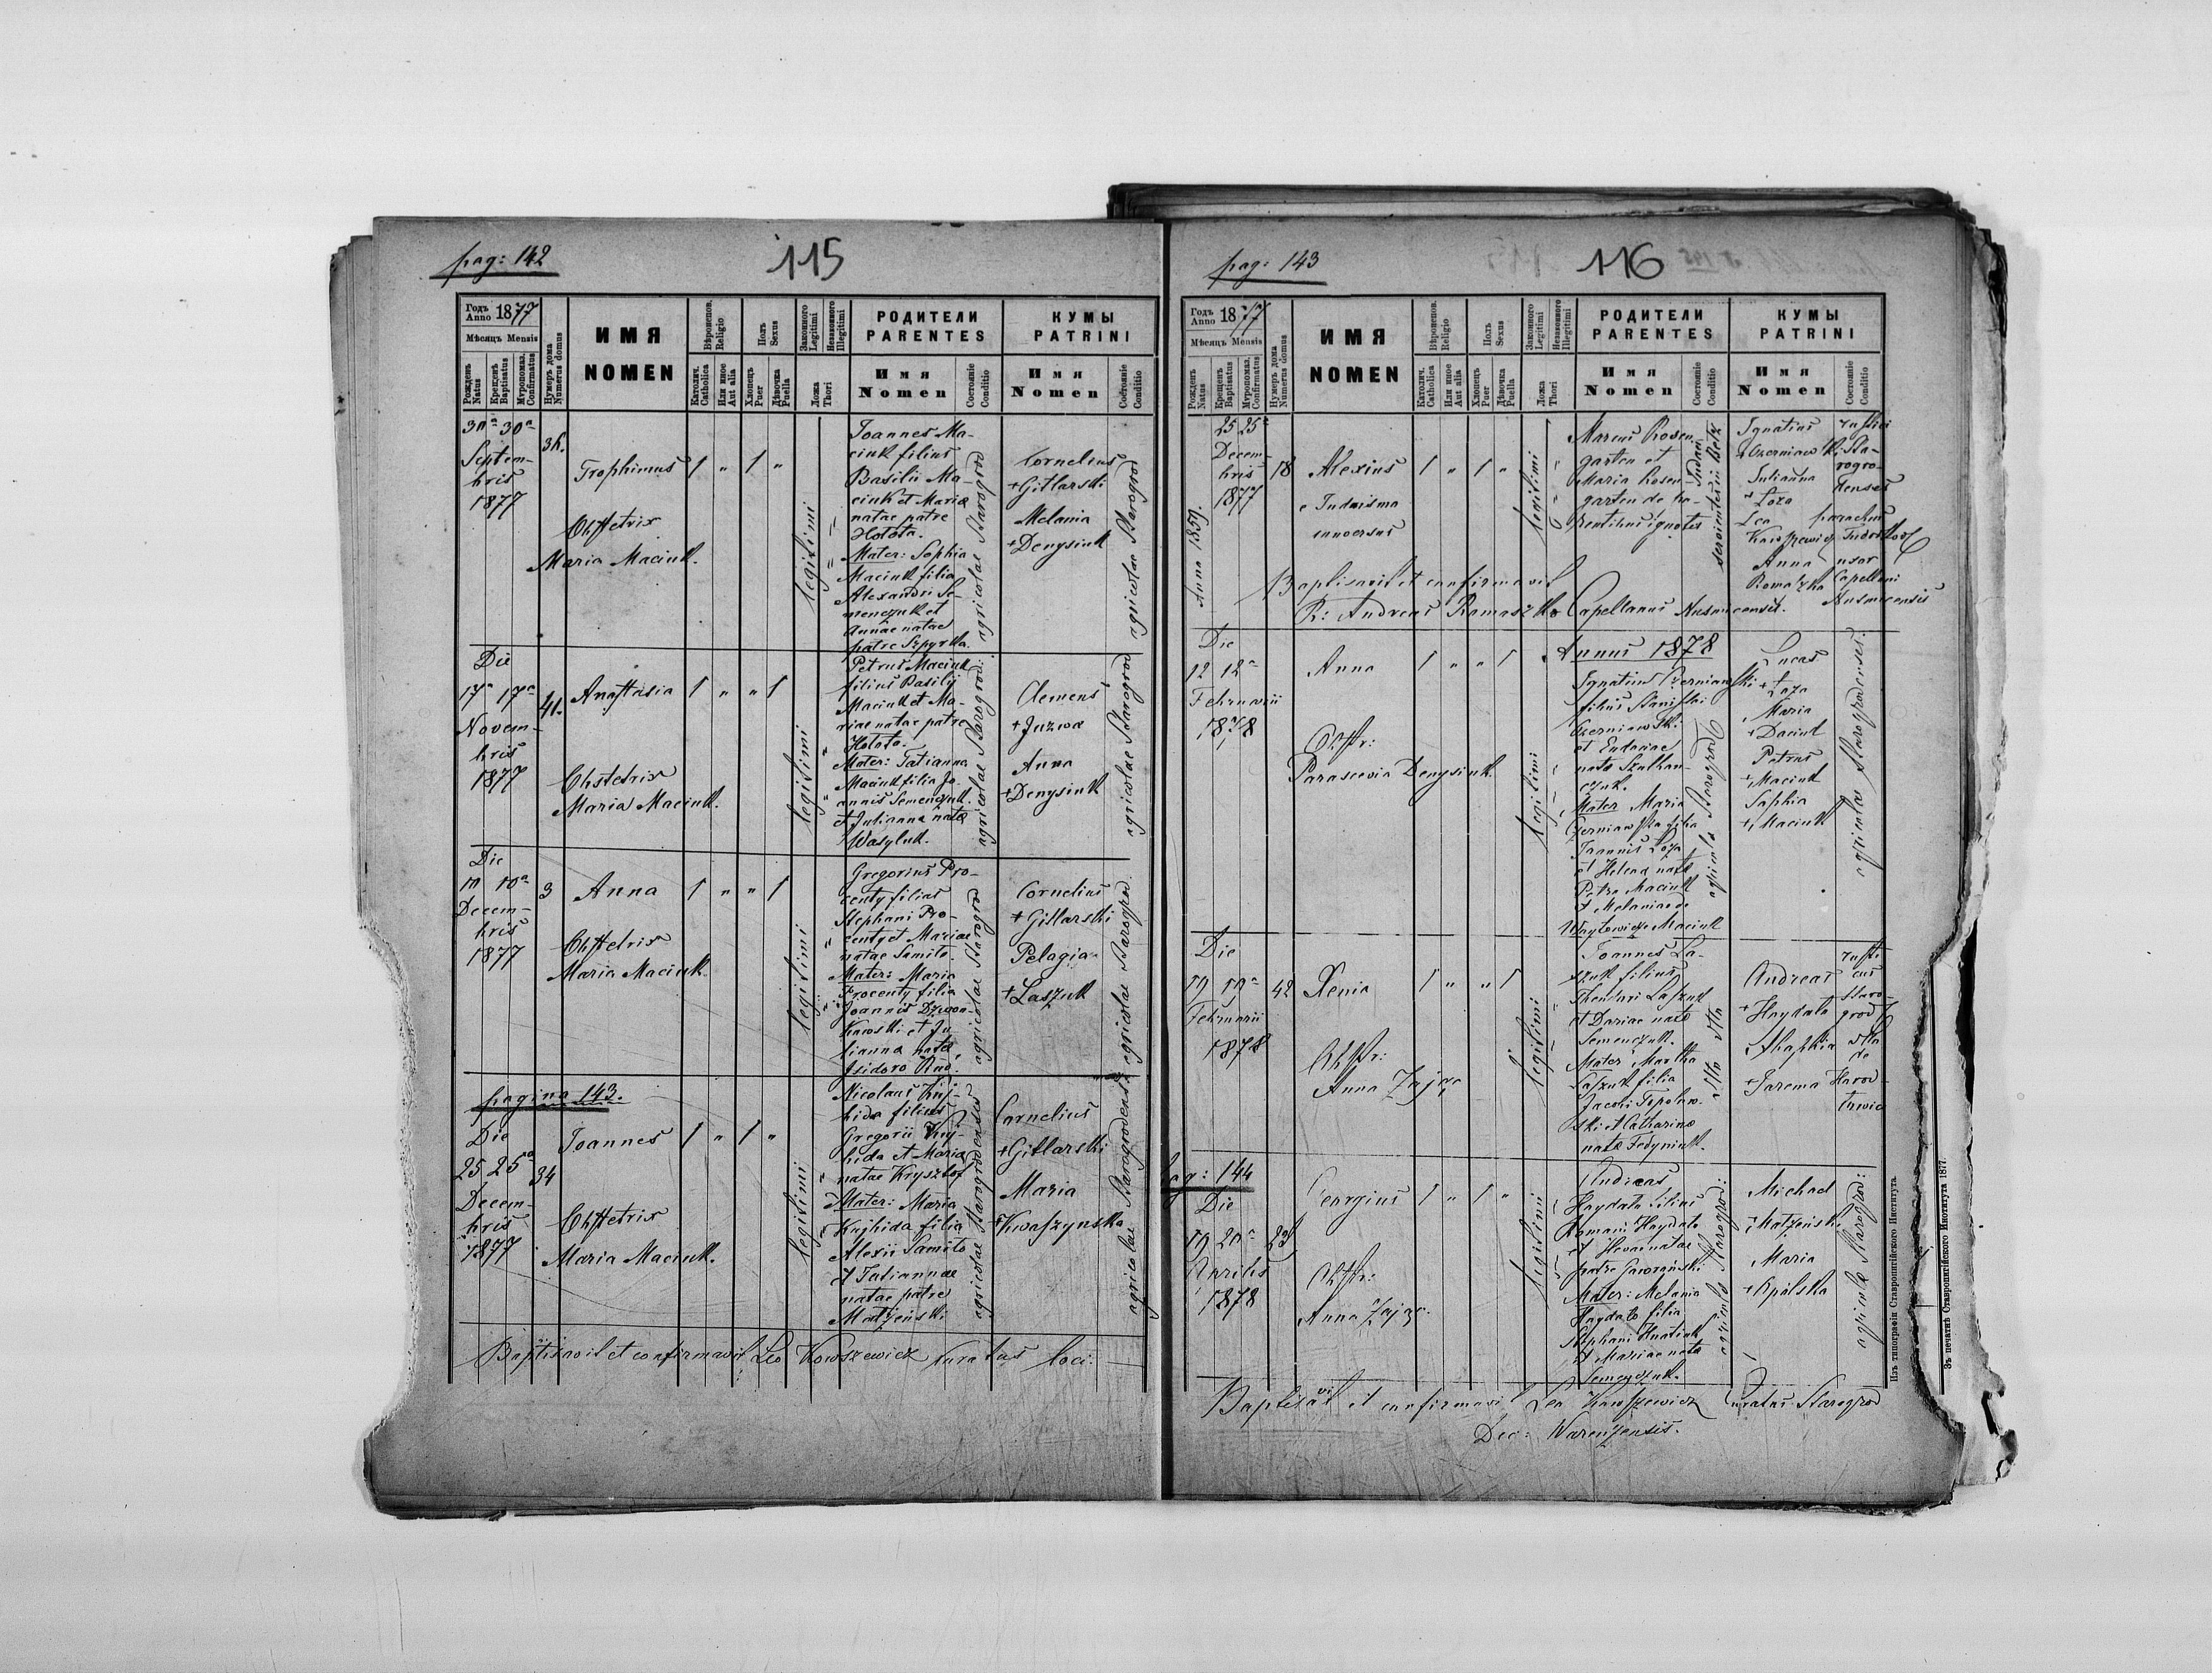 pag: 142
115
Годъ Anno 1877
Мѣсяцъ Mensis
Рожденъ Natus
Крещенъ Baptisatus
Мѵропомаз. Confirmatus
Нумеръ дома Numerus domus
ИМЯ
NOMEN
Вѣроисповѣд. Religio
Католич. Catholica
Или иное Aut alia
Полъ Sexus
Хлопецъ Puer
Дѣвочка Puella
Законного Legitimi
Незаконного Illegitimi
Ложа Thori
РОДИТЕЛИ
PARENTES
Имя
Nomen
Состояніе Conditio
КУМЫ
PATRINI
Имя
Nomen
Состояніе Conditio
30a 30a
Septem-
bris
1877
36.
Trophimus 1 " 1 "
Obstetrix
Maria Maciuk.
legitimi
Joannes Ma-
ciuk filius
Basilii Ma-
ciuk et Maria
natae patre
Hołota.
Mater: Sophia
Maciuk filia
Alexandri Se-
menczuk et
Annae natae
patre Szpyrka.
agricolae Starogrod
Cornelius
+ Gitlarski
Melania
+ Denysiuk
agricolae Starogrod
Die
17a 17a
Novem-
bris
1877
41.
Anastasia 1 " " 1
Obstetrix
Maria Maciuk.
legitimi
Petrus Maciuk
filius Basilij
Maciuk et Ma-
riae natae patre
Hołota.
Mater: Tatianna
Maciuk filia Jo-
annis Semenczuk.
et Julianna nata
Wasyluk.
agricolae Starogrod:
Clemens
+ Juzwa
Anna
+ Denysiuk
agricolae Starogrod
Die
10 10a
Decem-
bris
1877
3
Anna 1 " " 1
Obstetrix
Maria Maciuk.
legitimi
Gregorius Pro-
centy filius
Stephani Pro-
centy et Mariae
natae Samito.
Mater: Maria
Procenty filia
Joannis Dzwon-
kowski et Ju-
lianna nata
Isidoro Rud.
agricolae Starogrod
Cornelius
+ Gitlarski
Pelagia
+ Laszuk
agricolae Starogrod.
pagina 143.
Die
25 25a
Decem-
bris
1877
34
Joannes 1 " 1 "
Obstetrix
Maria Maciuk.
legitimi
Nicolaus Kuj-
bida filius
Gregorii Kuj-
bida et Maria
natae Krysztof
Mater: Maria
Kujbida filia
Alexii Samito
et Tatiannae
natae patre
Matżenski
agricolae Starogrodenses
Cornelius
+ Gitlarski
Maria
+ Kwaszynska
agricolae Starogrodenses
Baptisavit et confirmavit Leo Kowszewicz Curatus loci.
pag: 143
116
Годъ Anno 1877
Мѣсяцъ Mensis
Рожденъ Natus
Крещенъ Baptisatus
Мѵропомаз. Confirmatus
Нумеръ дома Numerus domus
ИМЯ
NOMEN
Вѣроисповѣд. Religio
Католич. Catholica
Или иное Aut alia
Полъ Sexus
Хлопецъ Puer
Дѣвочка Puella
Законного Legitimi
Незаконного Illegitimi
Ложа Thori
РОДИТЕЛИ
PARENTES
Имя
Nomen
Состояніе Conditio
КУМЫ
PATRINI
Имя
Nomen
Состояніе Conditio
Anno 1859.
25 25a
Decem-
bris
1877
18
Alexius 1 " 1 "
e Judaismo
conversus
legitimi
Marcus Rosen-
garten et
Maria Rosen-
garten de pa-
rentibus ignotis
Judaei
servientes in Bełz
Ignatius
+ Czerniawski
Julianna
+ Łoza
Leo
Kowszewicz
Anna
Romaszko
rustici
Staro-
grodenses
parochus
uxor
Capellani
Baptisavit et confirmavit
R: Andreas Romaszko Capellanus
Annus 1878
Die
12 12a
Februarii
1878
Anna 1 " " 1
Obstr:
Parascevia Denysiuk.
legitimi
Ignatius Czerniawski
filius Stanislai
Czerniawski
et Eudociae
nata Szalhan-
czuk.
Mater Maria
Czerniawska filia
Joannis Łoza
et Helena nata
Petro Maciuk
et Melaniae de
Waytowicz Maciuk
agricola Starogrod
Lucas
+ Łoza
Maria
+ Daciuk
Petrus
+ Maciuk
Sophia
+ Maciuk
agricolae Starogrodenses.
Die
19 19a
Februarii
1878
42
Xenia 1 " " 1
Obstr:
Anna Zając
legitimi
Joannes La-
szuk filius
Theodori Laszuk
et Dariae nata
Semenczuk.
Mater Martha
Laszuk filia
Jacobi Topolow-
ski et Catharina
nata Fedyniuk.
dtto dtto
Andreas
+ Haydata
Ahaphia
+ Jarema
rusti-
cus
Staro-
grod
dtta
de
Horod-
lowice
pag: 144
Die
19 20a
Aprilis
1878
23
Georgius 1 " 1 "
Obstr:
Anna Zając.
legitimi
Andreas
Haydata filius
Romani Haydato
et Hevae natae
patre Jaworski
Mater: Melania
Haydato filia
Stephani Hnatiuk
et Mariae nata
Semenczuk.
agricola Starogrod:
Michael
+ Matżenski
Maria
+ Opolska
agricola Starogrod:
Baptisavit et confirmavit Leo Kowszewicz Curatus Starogrod
Dec: Warenzensis.
Изъ типографіи Ставропигійского Института.
Зъ печатнѣ Ставропигійского Института 1877.